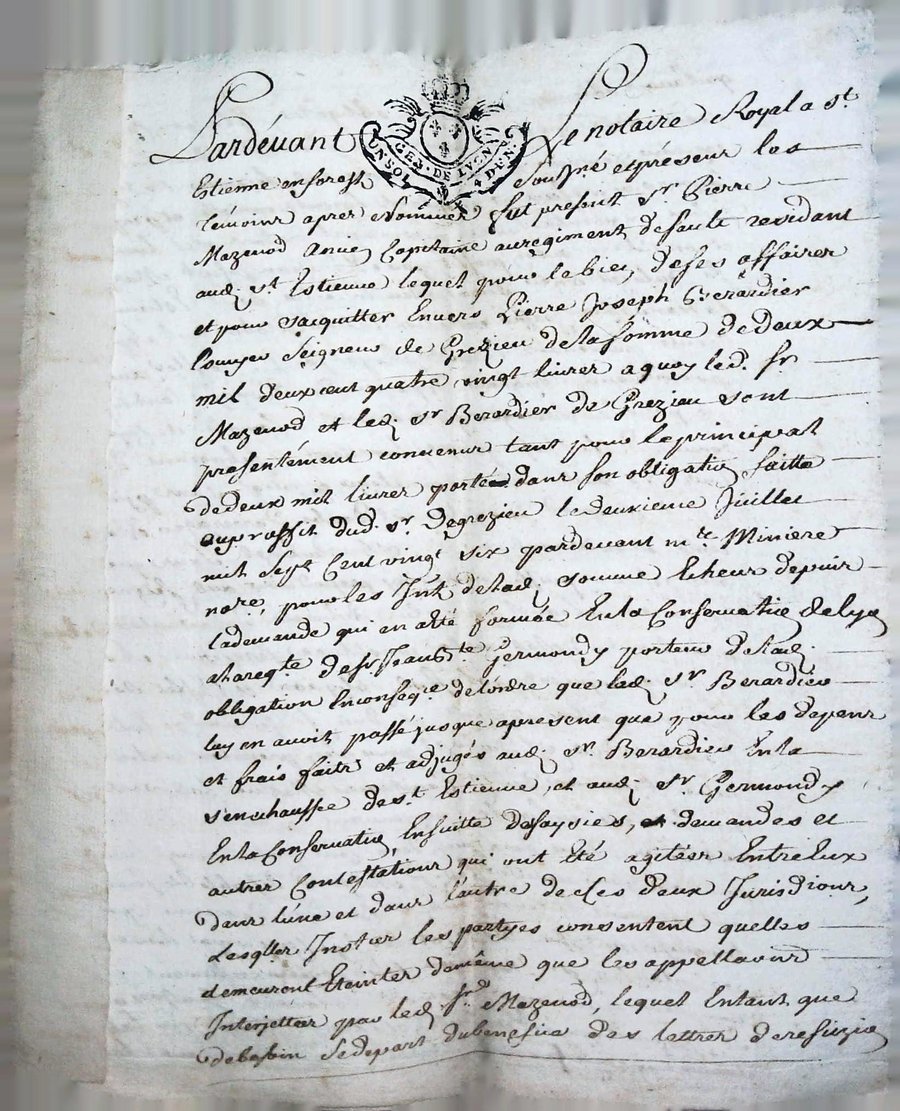 Pardevant Le notaire Royal a st
GEN. DE LYON
UN SOL 4 DEN.
Estienne en forest Soussigné et presens les
témoins apres Nommés fut present sr. Pierre
Mazenod Ancien Capitaine au regiment de saulx residant
aud. st Estienne lequel pour le bien de ses affaires
et pour s'acquitter Envers Pierre Joseph Berardier
Escuyer Seigneur de Grezieu de la somme de deux
mil deux cent quatre vingt livres a quoy led. sr.
Mazenod et led. sr Berardier de Grezieu sont
presentément convenus tant pour le principal
de deux mil livres portée dans son obligation faitte
au proffit dud. sr. de grezieu le deuxieme Juillet
mil Sept Cent vingt six pardevant mre. Miniere
nore, pour les Int. de lad. somme Echeus depuis
la demande qui en a été formée En la Conservation de lyon
a la reqte. de sr. Jean Bte. Germond porteur de lad.
obligation En conseqce. de l'ordre que led. sr. Berardier
luy en avoit passé jusque apresent que pour les depens
et frais faits et adjugés aud. sr. Berardier En la
senechaussée de st. Estienne, et aud. sr. Germond
En la Conservation, Ensuitte de saysies, demandes et
autres Contestations qui ont Eté agitées Entre Eux
dans l'une et dans l'autre de ces deux Jurisdions,
desqlles Instces les partyes consentent quelles
demeurent Eteintes de même que les appellations
Interjettées par led. sr. Mazenod, lequel Entant que
de besoin se depart du benefice des lettres de rescizion